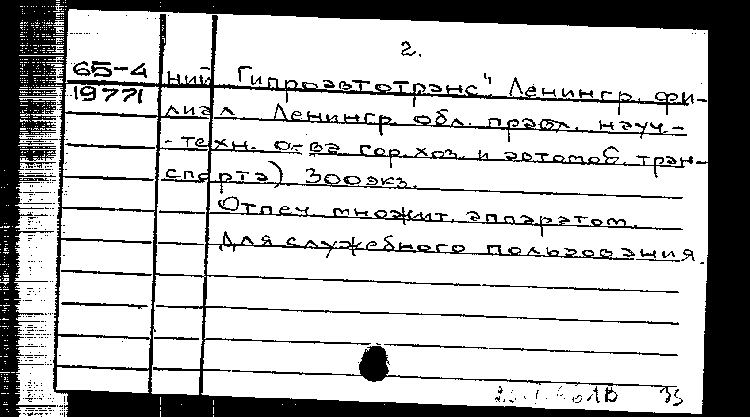 2.
65-4
19771
ний "Гипроавтотранс". Ленингр. фи-
лиал. Ленингр. обл. правл. науч.-
-техн. о-ва гор. хоз. и автомоб. тран-
спорта). 300экз.
Отпеч. множит. аппаратом.
Для служебного пользования.
35